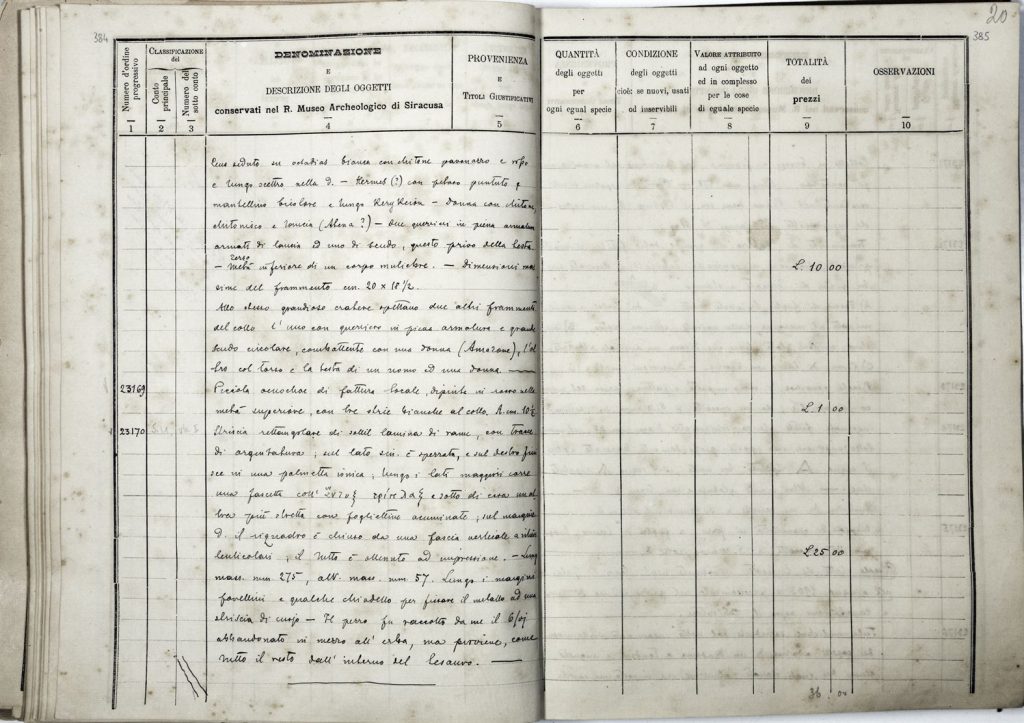 384
Numero d'ordine progressivo
CLASSIFICAZIONE del
Conto principale
Numero del sotto conto
DENOMINAZIONE
E
DESCRIZIONE DEGLI OGGETTI
conservati nel R. Museo Archeologico di Siracusa
PROVENIENZA
E
TITOLI GIUSTIFICATIVI
1
2
3
4
5
20
385
QUANTITÀ
degli oggetti
per
ogni egual specie
CONDIZIONE
degli oggetti
cioè: se nuovi, usati
od inservibili
VALORE ATTRIBUITO
ad ogni oggetto
ed in complesso
per le cose
di eguale specie
TOTALITÀ
dei
prezzi
OSSERVAZIONI
6
7
8
9
10
seduto su bianco con chitone pavonazzo e
e lungo scettro nella d. - Hermes (?) con petaso puntuto e
mantellino bicolore e lungo Kerykeion - donna con chitone,
chitonisco e lancia (Atena?) - due guerrieri in piena armatura
armati di lancia ed uno di scudo, questo privo della testa
torso
- Metà inferiore di un corpo muliebre. - Dimensioni mas
sime del frammento cm. 20 x 18 1/2.
L. 10 00
Allo stesso grandioso cratere spettano due altri frammenti
del collo l'uno con guerriero in piena armatura e grande
scudo circolare, combattente con una donna (Amazone), l'al
tro col torso e la testa di un uomo ed una donna.
23169
Piccola oenochoe di fattura locale, dipinta in rosso nella
metà superiore, con tre strie bianche al collo. A. cm. 10 1/2
L. 1 00
23170
Striscia rettangolare di sottil lamina di rame, con tracce
di argentatura; sul lato sin. è sperrata, e sul destro fini
sce in una palmetta ionica; lungo i lati maggiori corre
una fascetta coll' e sotto di essa un al
tra più stretta con fogliettine acuminate; sul margine
d. il riquadro è chiuso da una fascia verticale a
lenticolari; il tutto è ottenuto ad impressione. - Lung.
L. 25 00
mass. mm 275, alt. mass. mm 57. Lungo i margini
forellini e qualche chiodello per fissare il metallo ad una
striscia di cuojo - Il pezzo fu raccolto da me il
abbandonato in mezzo all'erba, ma proviene, come
tutto il resto dall'interno del Tesauro.
36 00